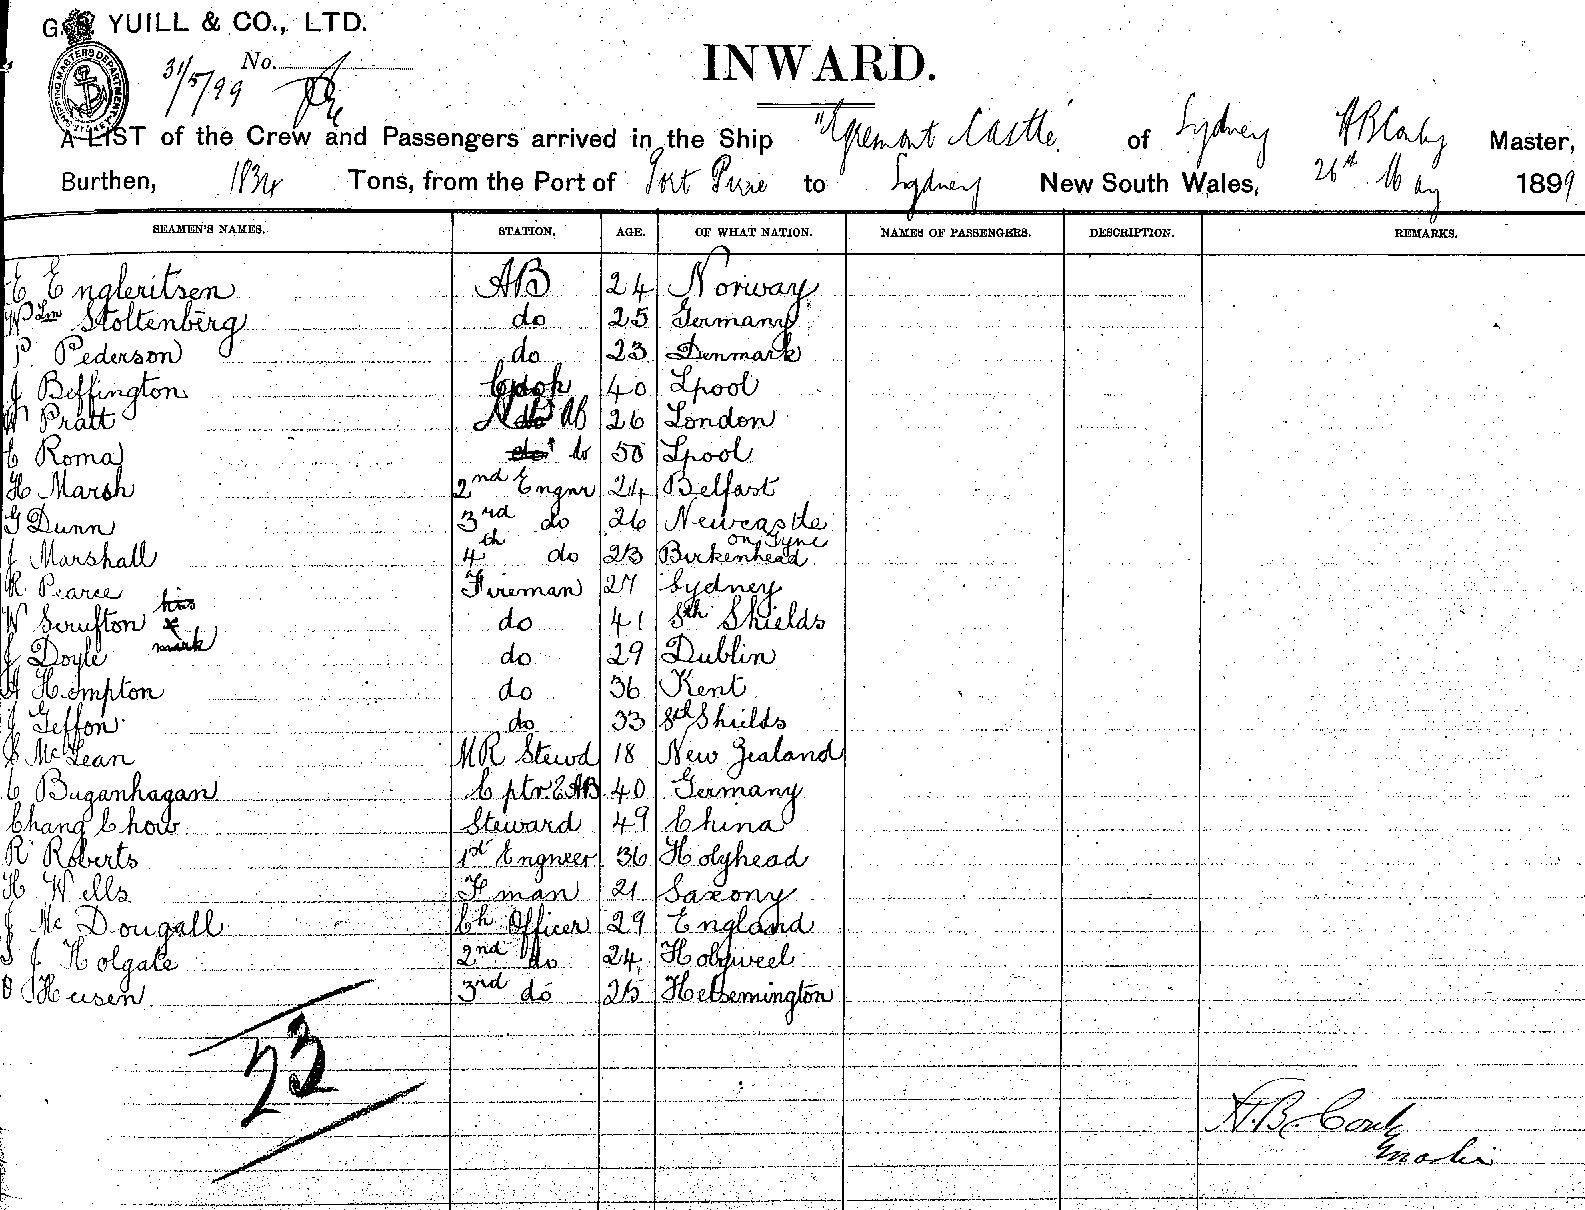 G.S. YUILL & CO., LTD.
No.
31/5/99
INWARD.
A LIST of the Crew and Passengers arrived in the Ship "Egremont Castle" of Sydney Master,
Burthen, 1834 Tons, from the Port of Port Pirie to Sydney New South Wales, 26th May 1899
SEAMEN'S NAMES. STATION. AGE. OF WHAT NATION. NAMES OF PASSENGERS. DESCRIPTION. REMARKS.
E Engleritsen AB 24 Norway
Wm Stoltenberg do 25 Germany
P Pederson do 23 Denmark
J Beffington Cook 40 Lpool
W Pratt AB 26 London
C Roma do 50 Lpool
H Marsh 2nd Engnr 24 Belfast
G Dunn 3rd do 26 Newcastle on Tyne
J Marshall 4th do 23 Birkenhead
R Pearce Fireman 27 Sydney
W Scrufton his x mark do 41 Sth Shields
J Doyle do 29 Dublin
A Hempton do 36 Kent
J Geffon do 33 Sth Shields
C McLean MR Stewd 18 New Zealand
C Buganhagan Cptr & AB 40 Germany
Chang Chow Steward 49 China
R Roberts 1st Engneer 36 Holyhead
H Wells Fman 21 Saxony
J McDougall Ch Officer 29 England
S J Holgate 2nd do 24 Holyweel
O Husen 3rd do 25 Helsemington
23
Master